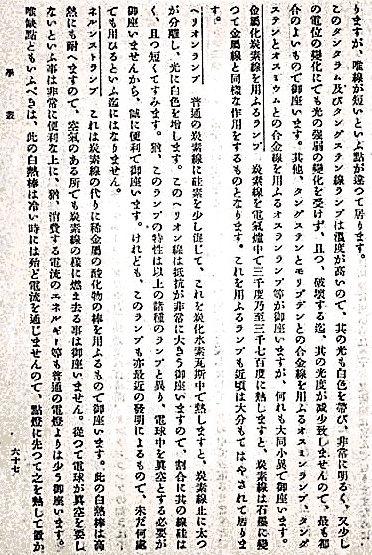 りますが、唯線が短いといふ點が違つて居ります。
このタンタラム及びタングステン線ランプは溫度が高いので、其の光も白色を帶び、非常に明るく、又少し
の電位の變化にても光の強弱の變化を受けず、且つ、破壞する迄、其の光度が減少致しませんので、最も都
合のよいもので御座います。其他、タングステンとモリブデンとの合金線を用ふるオスミンランプ、タング
ステンとオスミウムとの合金線を用ふるオスランランプ等が御座いますが、何れも大同小異で御座います。
金屬化炭素線を用ふるランプ　炭素線を電氣爐中で三千度乃至三千七百度に熱しますと、炭素線は石墨に變
つて金屬線と同樣な作用をするものとなります。これを用ふるランプも近頃は大分もてはやされて居りま
す。
ヘリオンランプ　普通の炭素線に硅素を少し混じて、これを炭化水素瓦斯中で熱しますと、炭素線止に太つ
が分離し、光に白色を增します。このヘリオン線は抵抗が非常に大きう御座いますので、割合に其の線は
く、且つ短くてすみます。猶、このランプの特性は以上の諸種のランプと異り、電球中を眞空とする必要が
御座いませんから、誠に便利で御座います。けれども、このランプも亦最近の發明によるもので、未だ何處
でも用ひるといふ迄にはなりません。
ネルンストランプ　これは炭素線の代りに稀金屬の酸化物の棒を用ふるもので御座います。此の白熱棒は高
熱にも耐へますので、空氣のある所でも炭素線の樣に燃え去る事は御座いません。從つて電球が眞空を要し
ないといふ事は非常に便利な上に、猶、消費する電流のエネルギー等も普通の電燈よりは少う御座います。
唯缺點ともいふべきは、此の白熱棒は冷い時には殆ど電流を通じませんので、點燈に先つて之を熱して置か
學叢
六十七